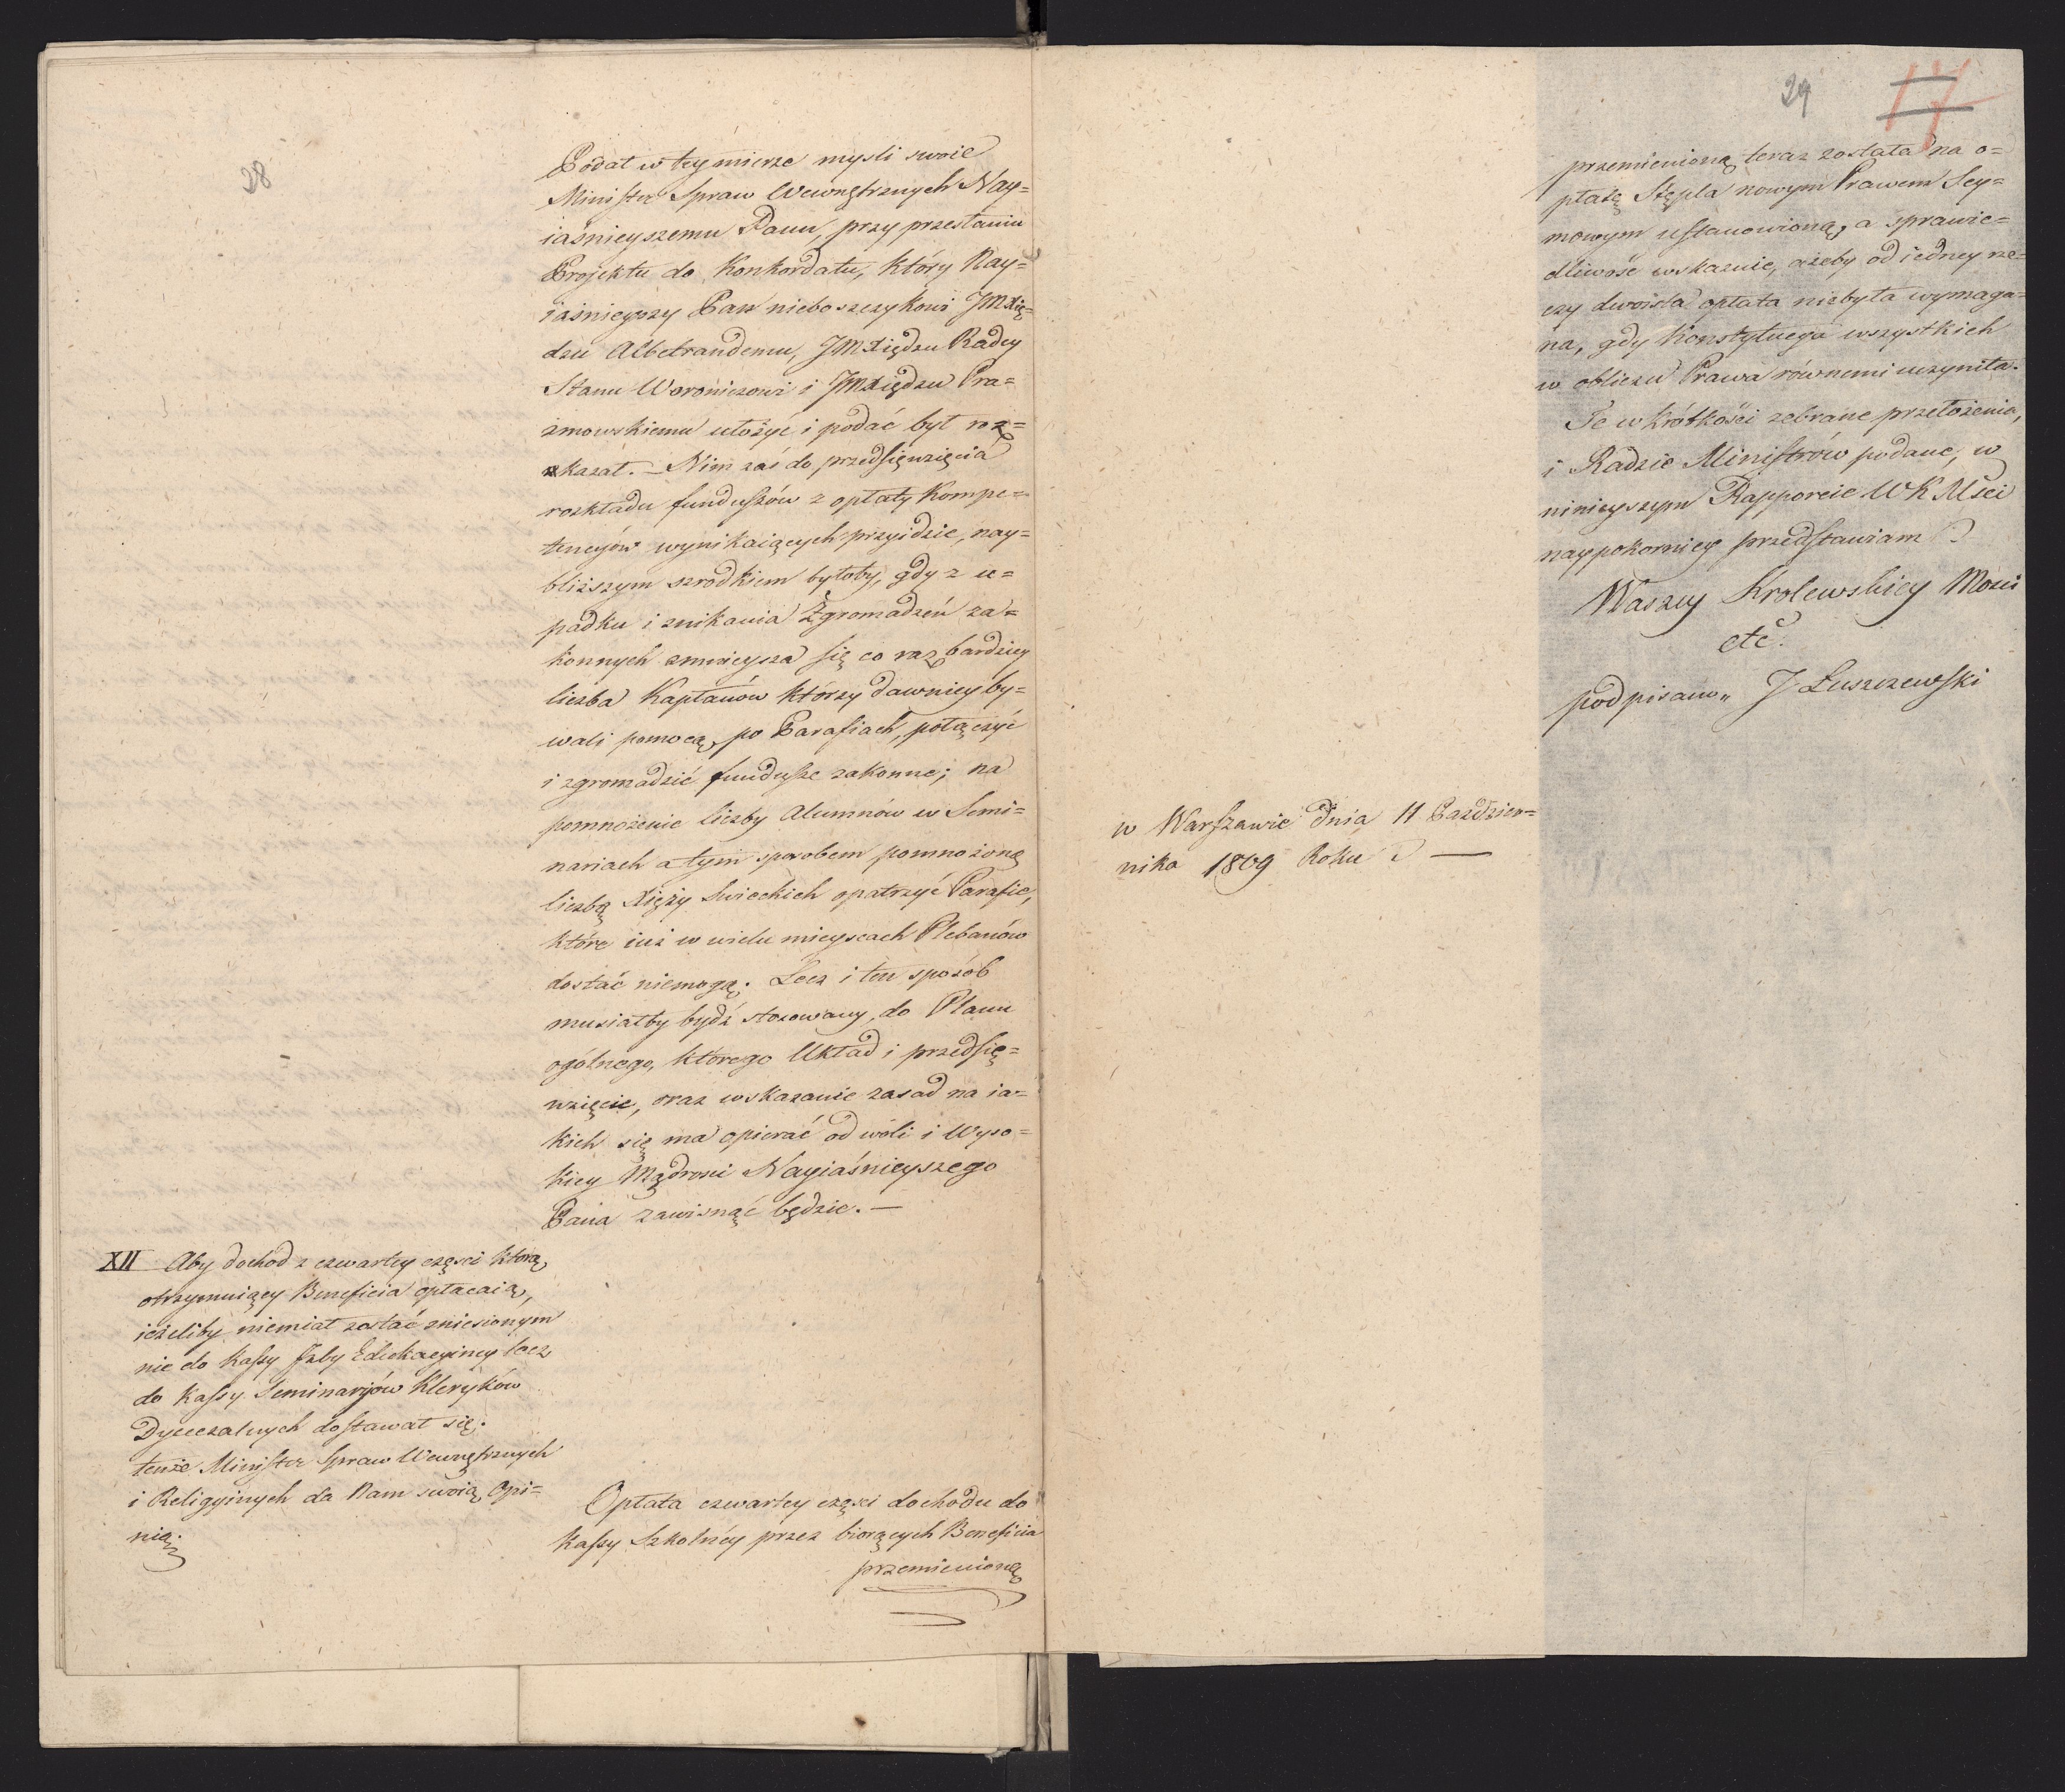 28
Podał w tey mierze mysli swoie
Minister Spraw Wewnętrznych Nay=
iaśnieyszemu Panu, przy przesłaniu
Projektu do Konkordatu, który Nay=
iaśnieyszy Pan nieboszczykowi JMXię=
dzu Albetrandemu, JMXiędzu Radcy
Stanu Woroniczowi i JMXiędzu Pra=
zmowskiemu ułożyć i podać był roz=
kazał. – Nim zaś do przedsięwzięcia
rozkładu funduszów z opłaty Kompe=
tencyów wynikaiących przyidzie, nay=
bliższym szrodkiem byłoby, gdy z u=
padku i znikania Zgromadzeń za=
konnych zmnieysza się co raz bardziey
liczba Kapłanów którzy dawniey by=
wali pomocą, po Parafiach, połączyć
i zgromadzić fundusze zakonne; na
pomnożenie liczby Alumnów w Semi=
nariach a tym sposobem pomnożoną
liczbą Xięży Swieckich opatrzyć Parafie,
które iuż w wielu mieyscach Plebanów
dostać niemogą. Lecz i ten sposób
musiałby bydź stosowany, do Planu
ogólnego, którego Układ i przedsię=
wzięcie, oraz wskazanie zasad na ia=
kich się ma opierać od woli i Wyso=
kiey Mądrosci Nayiaśnieyszego
Pana zawisnąć będzie. –
XII Aby dochod z czwartey części którą
otrzymuiący Beneficia opłacaią,
ieżeliby niemiał zostać zniesionym
nie do Kassy Izby Edukacyiney lecz
do Kassy Seminaryów Kleryków
Dyecezalnych dostawał się;
tenże Minister Spraw Wewnętrznych
i Religyinych da Nam swoią Opi=
nią.
Opłata czwartey części dochodu do
Kassy Szkolney przez biorących Beneficia
przemienioną
29
17
przemienioną teraz została na o=
płatę Stępla nowym Prawem Sey=
mowym ustanowioną, a sprawie=
dliwość wskazuie, ażeby od iedney rze=
czy dwoista opłata niebyła wymaga=
na, gdy Konstytucya wszystkich
w obliczu Prawa równemi uczyniła.
Te w krótkości zebrane przełożenia,
i Radzie Ministrów podane, w
ninieyszym Rapporcie WKMści
naypokorniey przedstawiam
Waszey Krolewskiey Mości
etc.
podpisano„ J Łuszczewski
w Warszawie dnia 11 Paździer=
nika 1809 Roku —